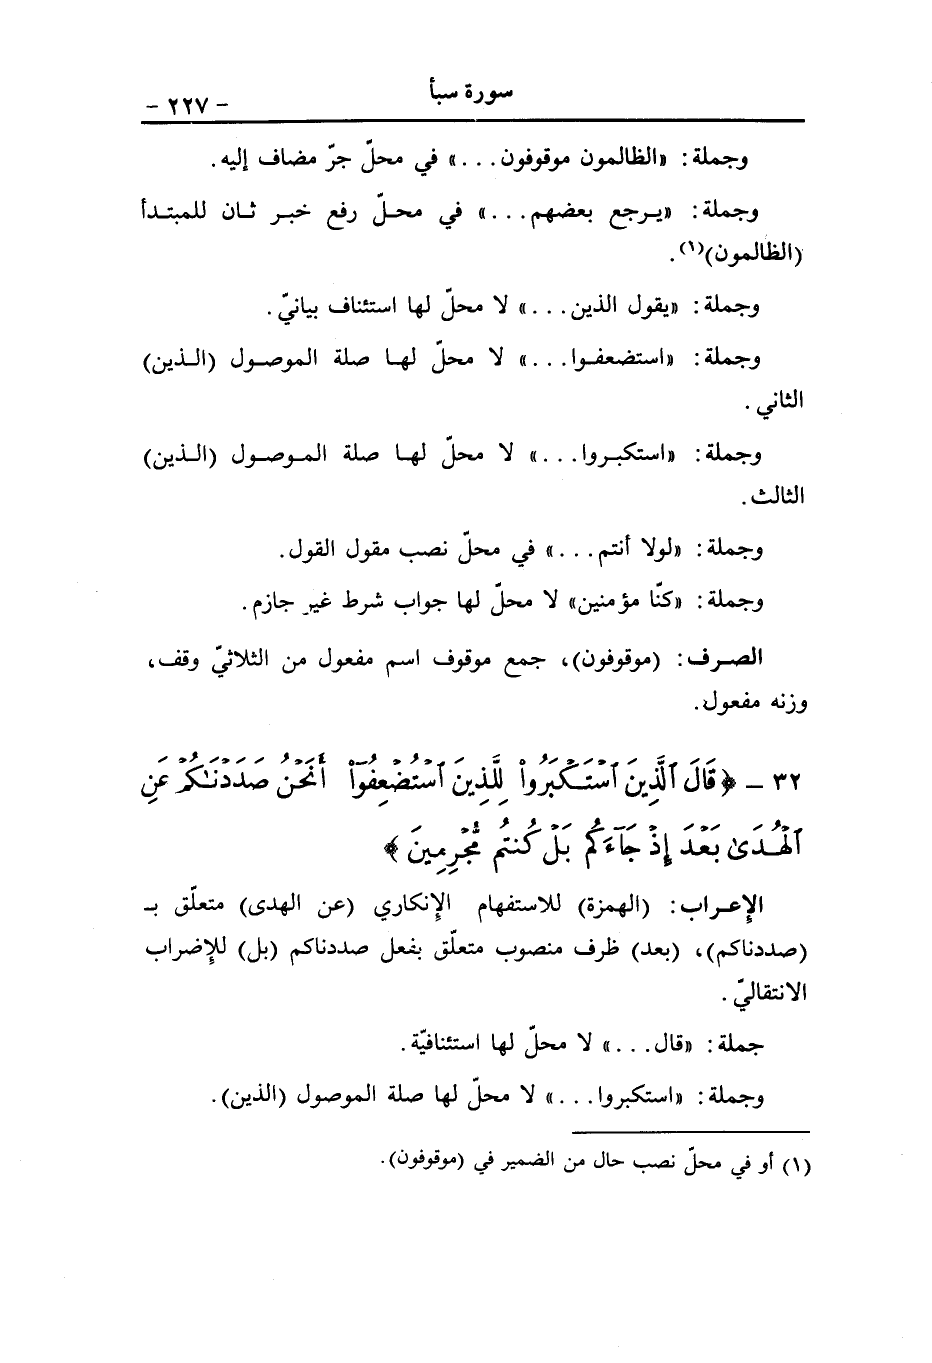 سورة سبأ
- ٢٢٧ -
وجملة: «الظالمون موقوفون...» في محلّ جرّ مضاف إليه.
وجملة: «يرجع بعضهم...» في محلّ رفع خبر ثان للمبتدأ
(الظالمون)(١).
وجملة: «يقول الذين...» لا محلّ لها استئناف بيانيّ.
وجملة: «استضعفوا...» لا محلّ لها صلة الموصول (الذين)
الثاني.
وجملة: «استكبروا...» لا محلّ لها صلة الموصول (الذين)
الثالث.
وجملة: «لولا أنتم...» في محلّ نصب مقول القول.
وجملة: «كنّا مؤمنين» لا محلّ لها جواب شرط غير جازم.
الصرف: (موقوفون)، جمع موقوف اسم مفعول من الثلاثيّ وقف،
وزنه مفعول.
٣٢ - ﴿قَالَ ٱلَّذِينَ ٱسْتَكْبَرُواْ لِلَّذِينَ ٱسْتُضْعِفُوٓاْ أَنَحْنُ صَدَدْنَٰكُمْ عَنِ
ٱلْهُدَىٰ بَعْدَ إِذْ جَآءَكُم بَلْ كُنتُم مُّجْرِمِينَ﴾
الإعراب: (الهمزة) للاستفهام الإنكاري (عن الهدى) متعلّق بـ
(صددناكم)، (بعد) ظرف منصوب متعلّق بفعل صددناكم (بل) للإضراب
الانتقاليّ.
جملة: «قال...» لا محلّ لها استئنافيّة.
وجملة: «استكبروا...» لا محلّ لها صلة الموصول (الذين).
(١) أو في محلّ نصب حال من الضمير في (موقوفون).